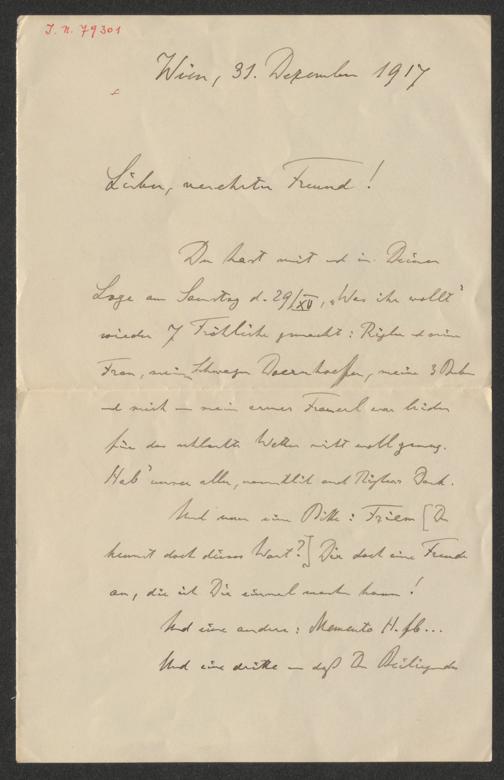 I. N. 79301
Wien, 31. Dezember 1917
Lieber, verehrter Freund!
Du hast mit und in Deiner
Loge am Samstag d. 29/XII, „Was ihr wollt"
wieder 7 Fröhliche gemacht: Rigler u seine
Frau, mein Schwager Doernhoeffer, meine 3 Buben
und mich – mein armes Frauerl war leider
für das schlechte Wetter nicht wohl genug.
Hab' unser aller, namentlich auch Riglers Dank.
Und nun eine Bitte: [Du
kennst doch dieses Wort?] Dir doch eine Freude
an, die ich Dir einmal machen kann!
Und eine andere: Memento H.
Und eine dritte – daß Du Beiliegendes